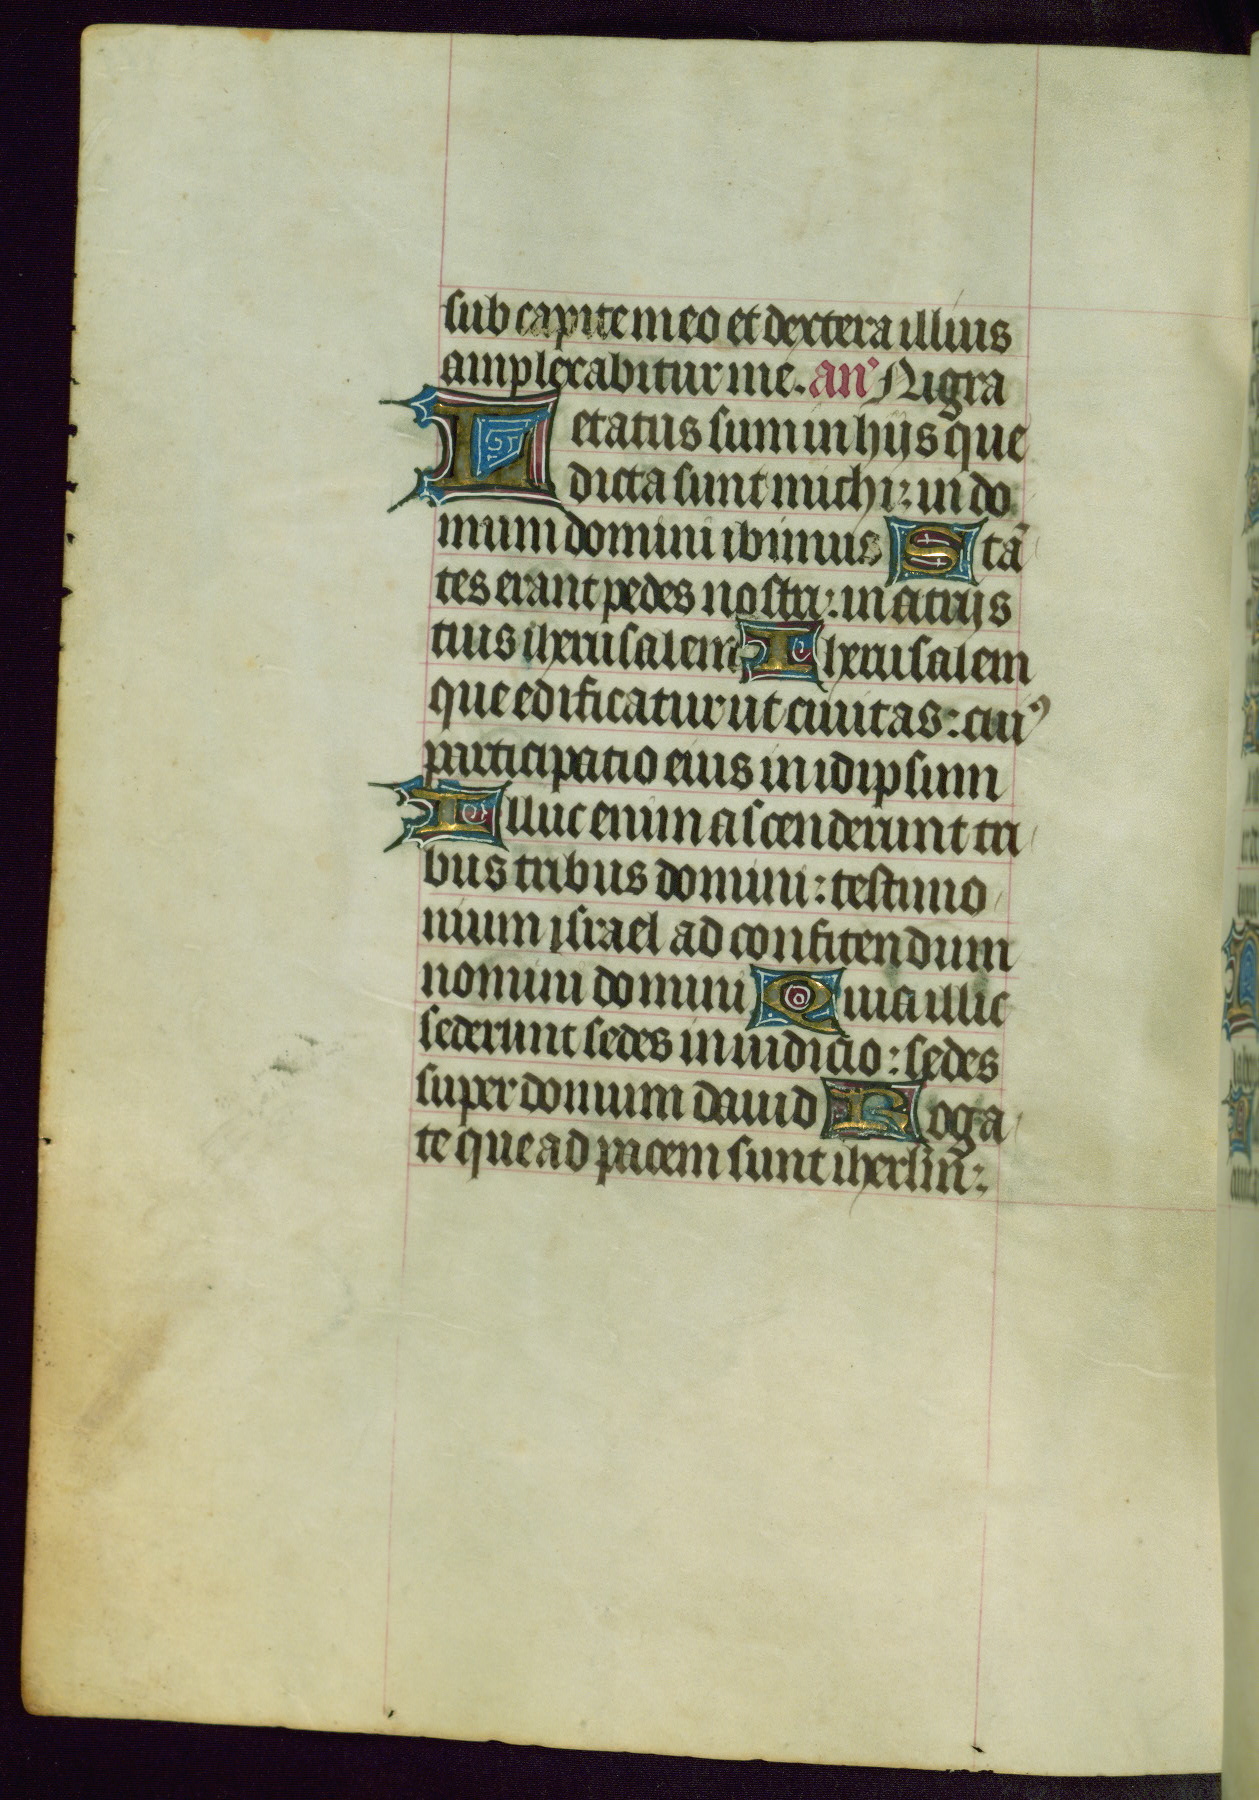 sub capite meo et dextera illius
amplexabitur me. an° Nigra
Letatus sum in hijs que
dicta sunt michi: in do
mum domini ibimus Stā
tes erant pedes nostri: in atrijs
tuis iherusalem Iherusalem
que edificatur ut ciuitas: cuiꝰ
participatio eius in idipsum
Illuc enim ascenderunt tri
bus tribus domini: testimo
nium israel ad confitendum
nomini domini Quia illic
sederunt sedes in iudicio: sedes
super domum dauid Roga
te que ad pacem sunt iherl̄m̄: